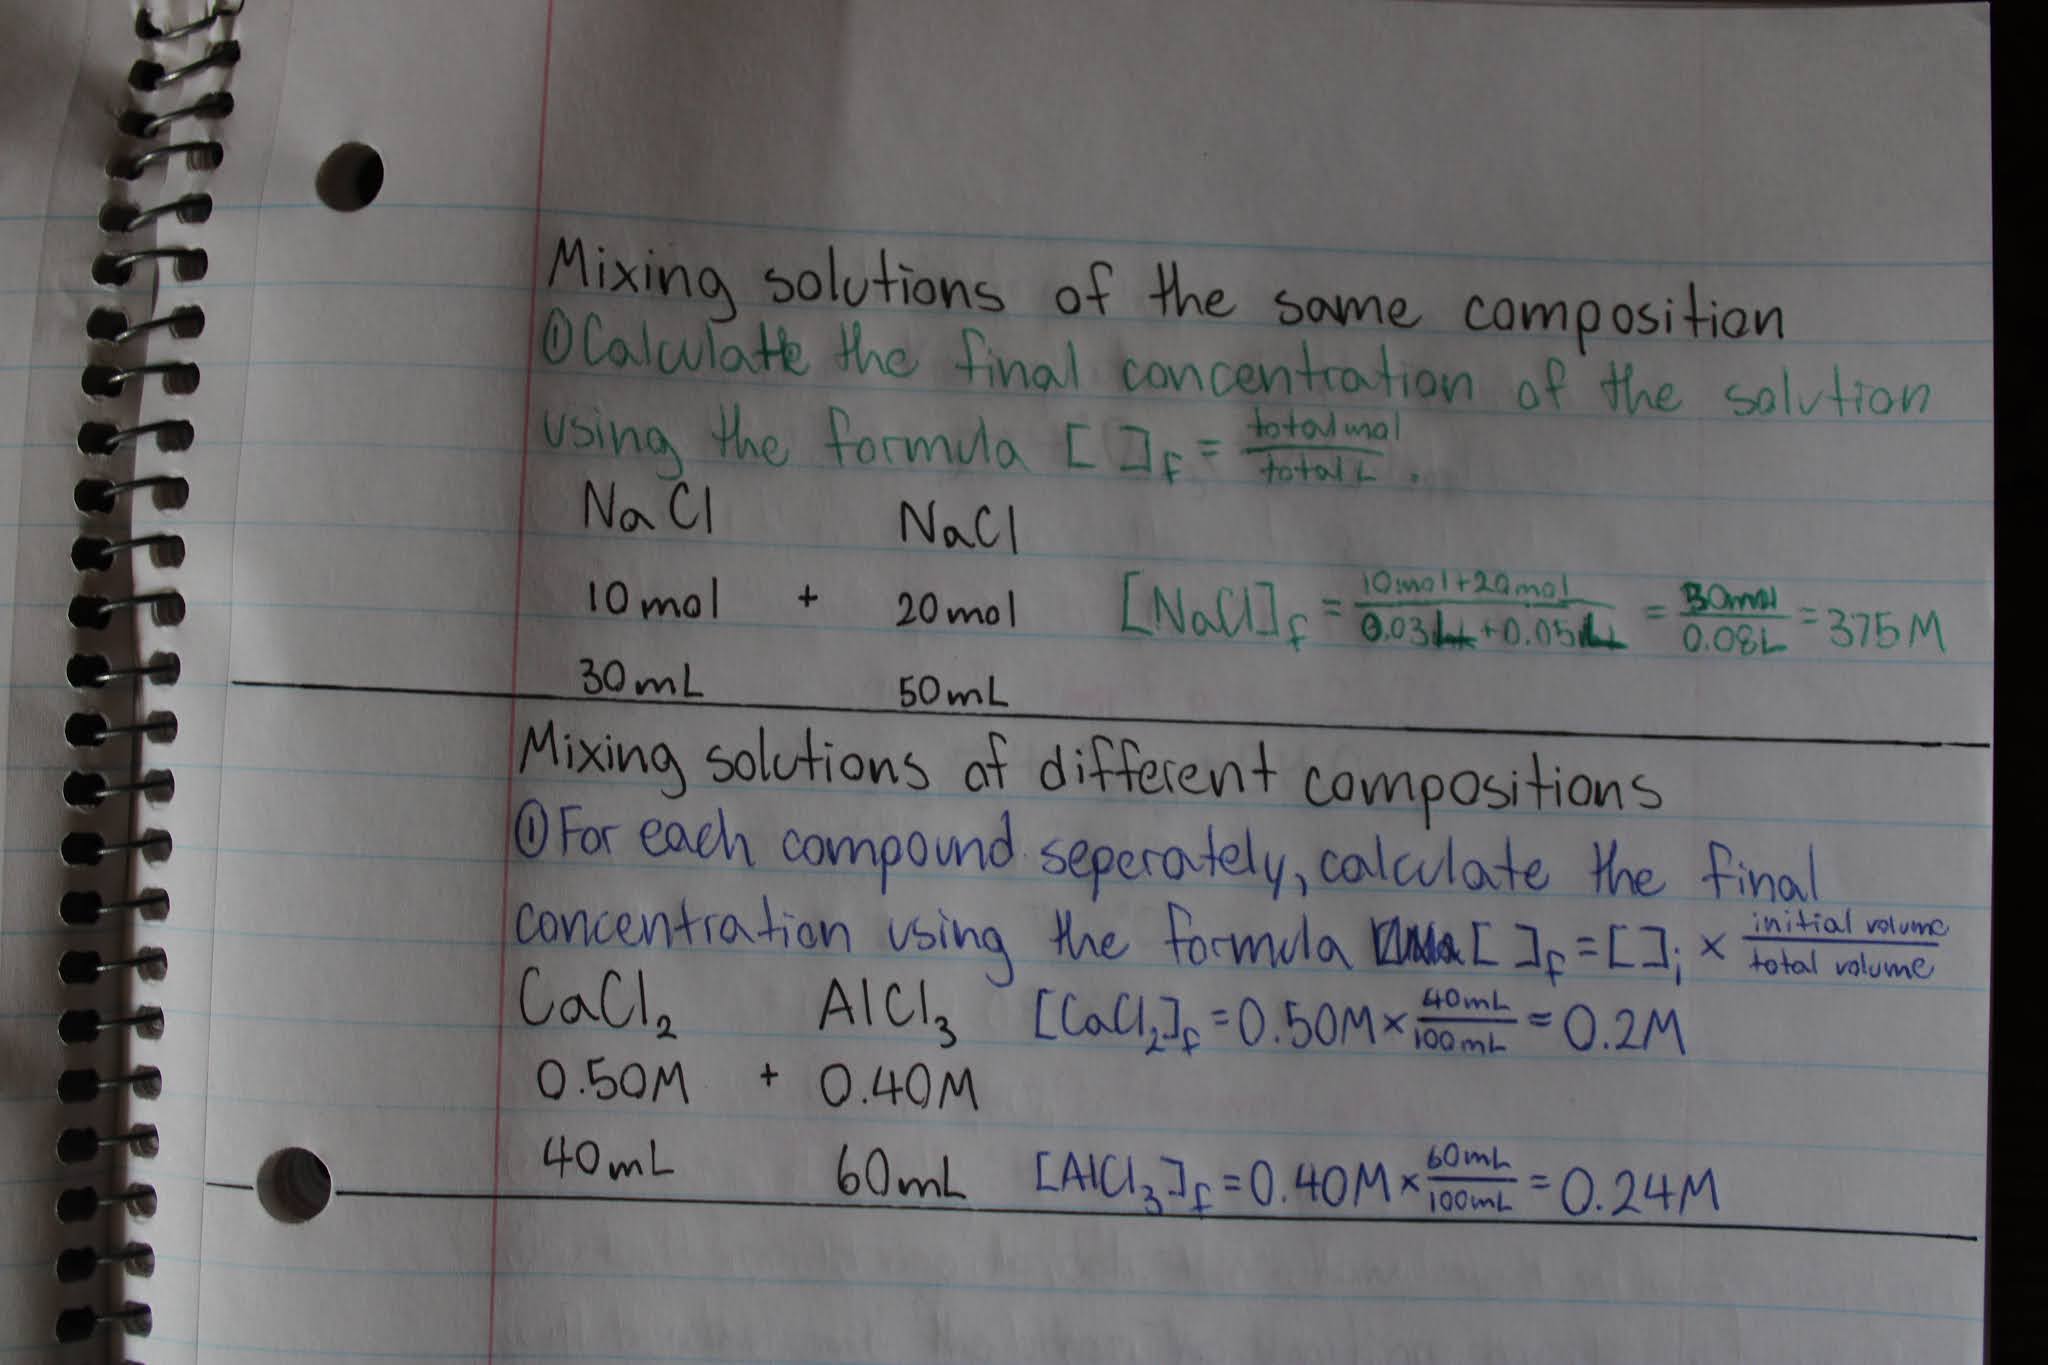 Mixing solutions of the same composition
①Calculate the final concentration of the solution
using the formula [ ]f = total mol / total L .
NaCl NaCl
10 mol + 20 mol [NaCl]f = 10mol+20mol / 0.03L+0.05L = 30mol / 0.08L = 375M
30mL 50mL
Mixing solutions of different compositions
①For each compound seperately, calculate the final
concentration using the formula [ ]f = [ ]i × initial volume / total volume
CaCl₂ AlCl₃ [CaCl₂]f = 0.50M × 40mL / 100mL = 0.2M
0.50M + 0.40M
40mL 60mL [AlCl₃]f = 0.40M × 60mL / 100mL = 0.24M